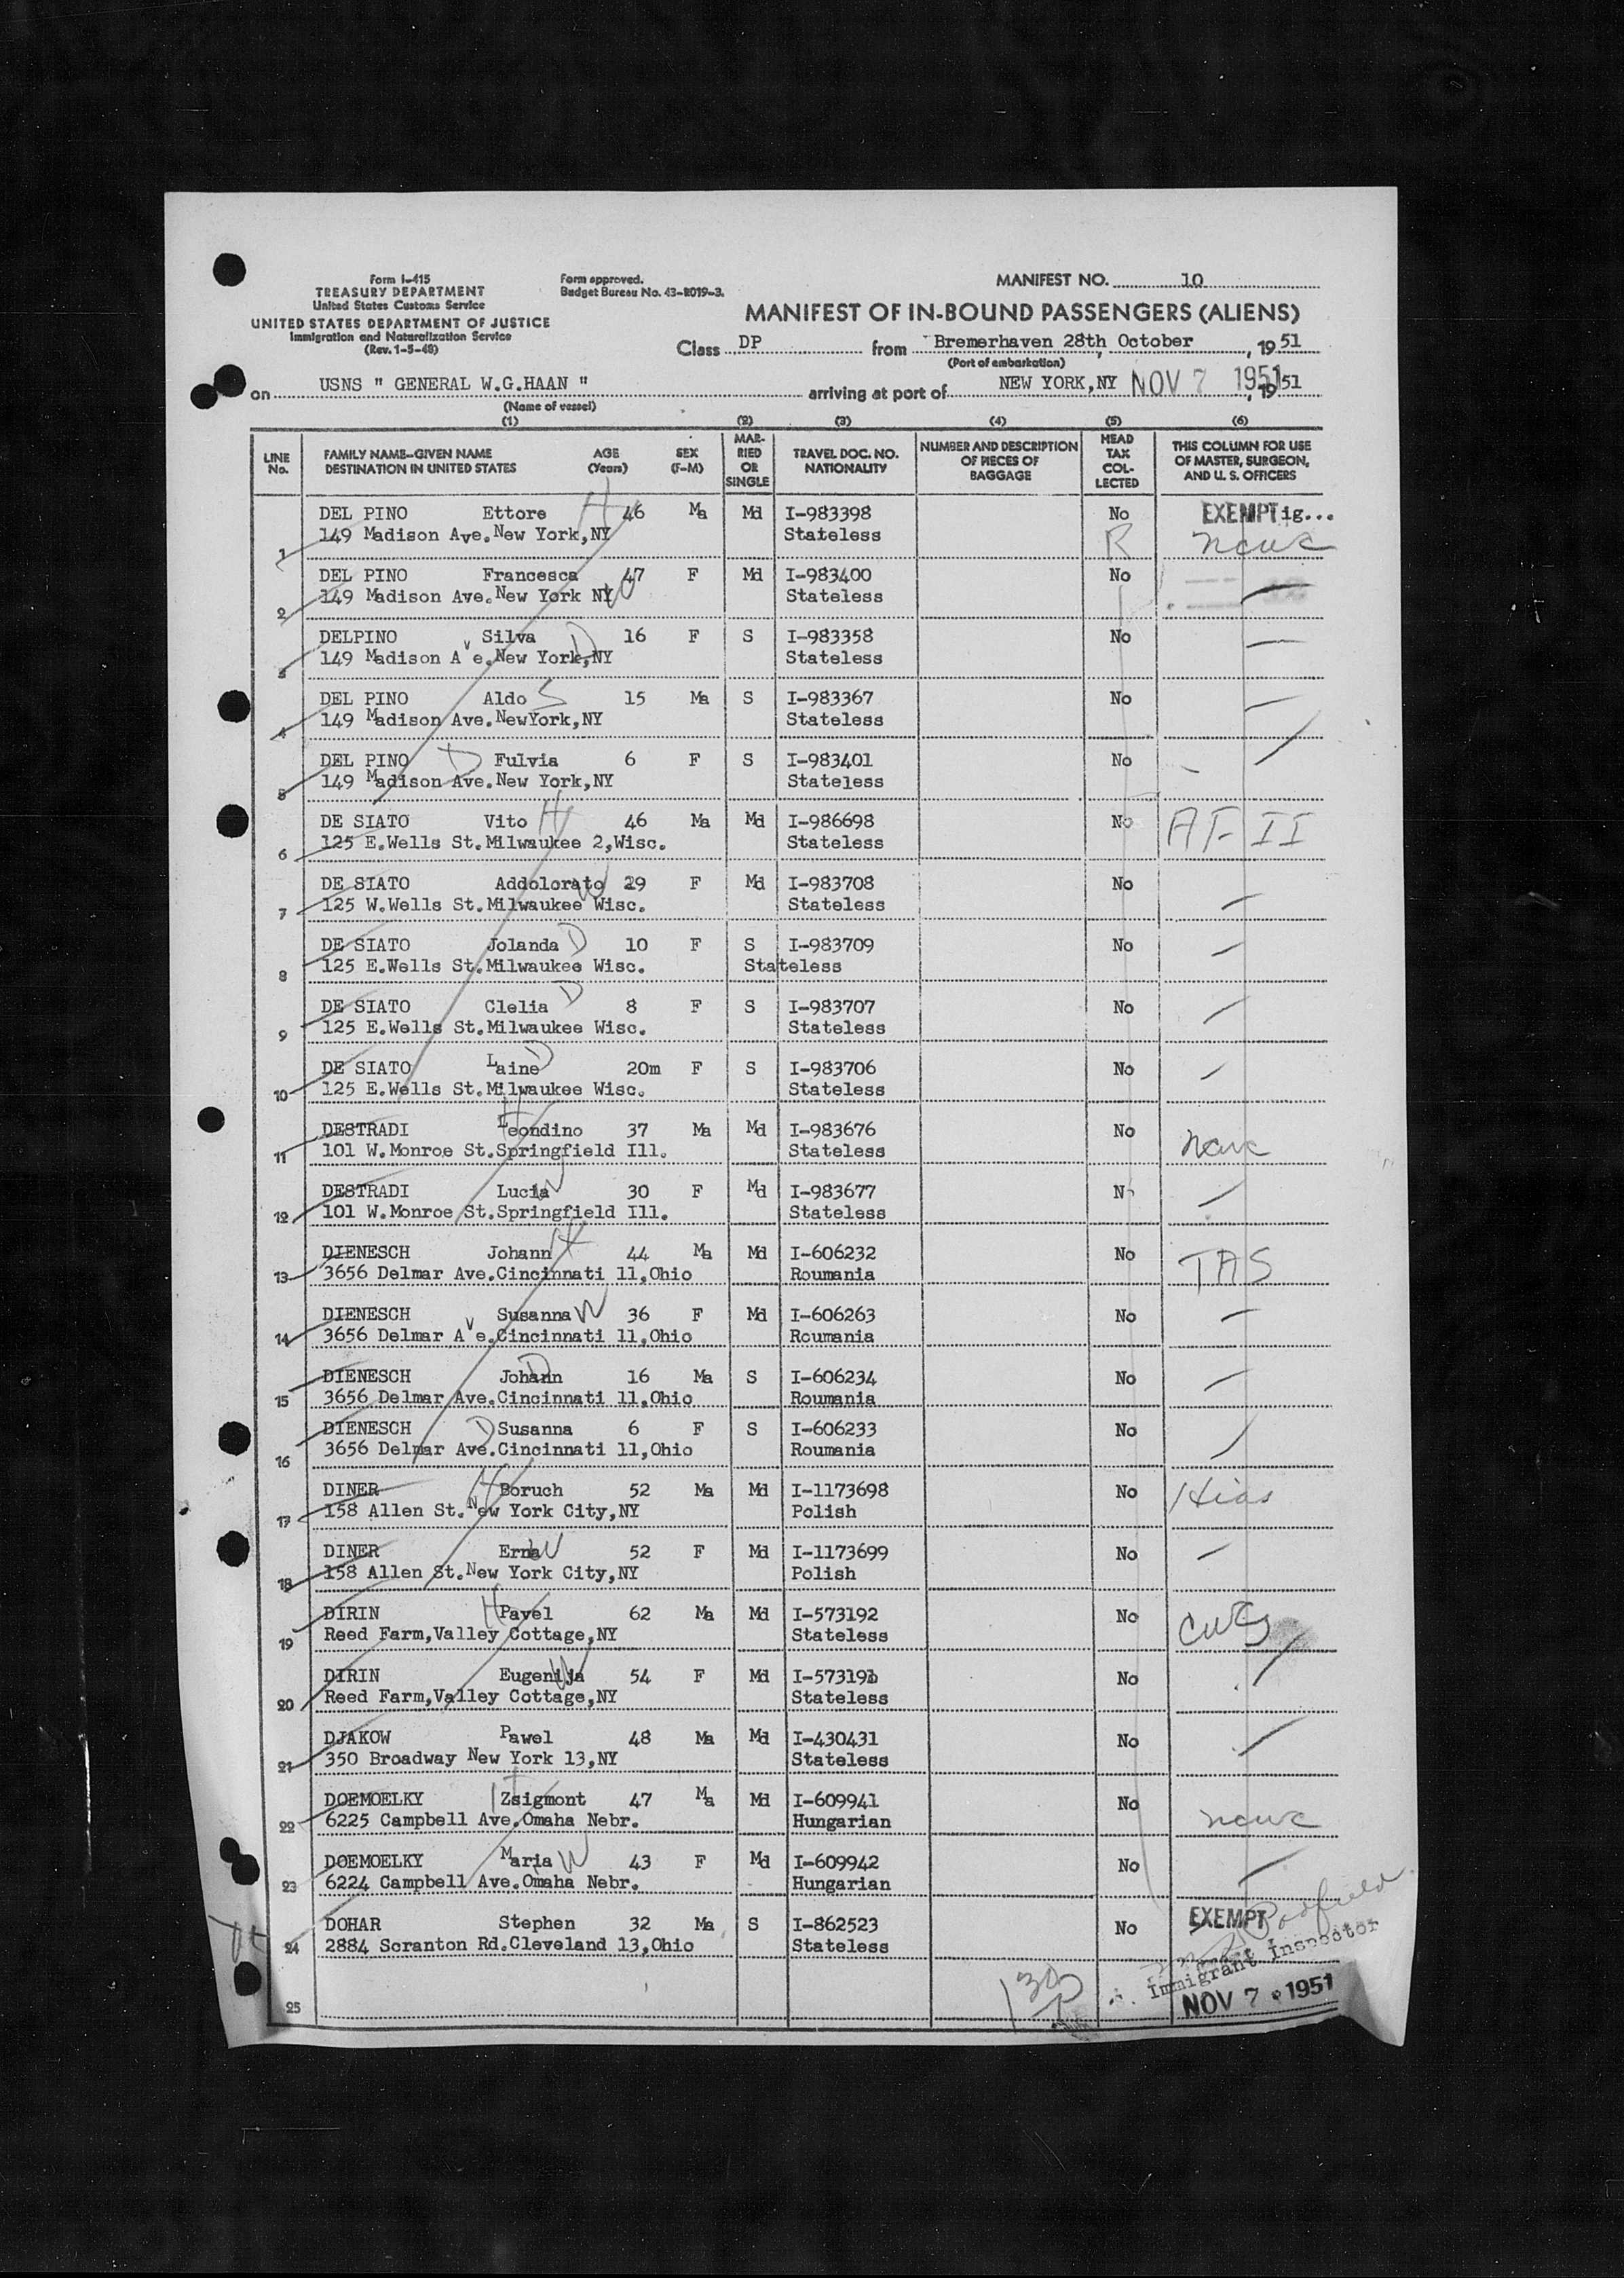 Form I-415
TREASURY DEPARTMENT
United States Customs Service
UNITED STATES DEPARTMENT OF JUSTICE
Immigration and Naturalization Service
(Rev. 1-5-48)
Form approved.
Budget Bureau No. 43-R019-3.
MANIFEST NO. 10
MANIFEST OF IN-BOUND PASSENGERS (ALIENS)
Class DP from Bremerhaven 28th October, 1951
(Port of embarkation)
on USNS " GENERAL W.G.HAAN " arriving at port of NEW YORK,NY NOV 7 1951, 1951
(Name of vessel)
(1) (2) (3) (4) (5) (6)
LINE No. FAMILY NAME-GIVEN NAME DESTINATION IN UNITED STATES AGE (Years) SEX (F-M) MAR-RIED OR SINGLE TRAVEL DOC. NO. NATIONALITY NUMBER AND DESCRIPTION OF PIECES OF BAGGAGE HEAD TAX COL-LECTED THIS COLUMN FOR USE OF MASTER, SURGEON, AND U. S. OFFICERS
DEL PINO Ettore H 46 Ma Md I-983398 No EXEMPT ig...
1 149 Madison Ave.New York,NY Stateless R ncwc
DEL PINO Francesca 47 F Md I-983400 No
2 149 Madison Ave.New York NY W Stateless
DELPINO Silva D 16 F S I-983358 No
3 149 Madison Ave.New York,NY Stateless
DEL PINO Aldo S 15 Ma S I-983367 No
4 149 Madison Ave.NewYork,NY Stateless
DEL PINO D Fulvia 6 F S I-983401 No
5 149 Madison Ave.New York,NY Stateless
DE SIATO Vito H 46 Ma Md I-986698 No AF II
6 125 E.Wells St.Milwaukee 2,Wisc. Stateless
DE SIATO Addolorato W 29 F Md I-983708 No
7 125 W.Wells St.Milwaukee Wisc. Stateless
DE SIATO Jolanda D 10 F S I-983709 No
8 125 E.Wells St.Milwaukee Wisc. Stateless
DE SIATO Clelia D 8 F S I-983707 No
9 125 E.Wells St.Milwaukee Wisc. Stateless
DE SIATO Laine D 20m F S I-983706 No
10 125 E.Wells St.Milwaukee Wisc. Stateless
DESTRADI Leondino H 37 Ma Md I-983676 No ncwc
11 101 W.Monroe St.Springfield Ill. Stateless
DESTRADI Lucia W 30 F Md I-983677 No
12 101 W.Monroe St.Springfield Ill. Stateless
DIENESCH Johann H 44 Ma Md I-606232 No TAS
13 3656 Delmar Ave.Cincinnati 11,Ohio Roumania
DIENESCH Susanna W 36 F Md I-606263 No
14 3656 Delmar Ave.Cincinnati 11,Ohio Roumania
DIENESCH Johann D 16 Ma S I-606234 No
15 3656 Delmar Ave.Cincinnati 11,Ohio Roumania
DIENESCH D Susanna 6 F S I-606233 No
16 3656 Delmar Ave.Cincinnati 11,Ohio Roumania
DINER H Boruch 52 Ma Md I-1173698 No Hias
17 158 Allen St.New York City,NY Polish
DINER Erna W 52 F Md I-1173699 No
18 158 Allen St.New York City,NY Polish
DIRIN H Pavel 62 Ma Md I-573192 No CWS
19 Reed Farm,Valley Cottage,NY Stateless
DIRIN Eugenija W 54 F Md I-573191 No
20 Reed Farm,Valley Cottage,NY Stateless
DJAKOW Pawel 48 Ma Md I-430431 No
21 350 Broadway New York 13,NY Stateless
DOEMOELKY H Zsigmont 47 Ma Md I-609941 No
22 6225 Campbell Ave.Omaha Nebr. Hungarian ncwc
DOEMOELKY Maria W 43 F Md I-609942 No
23 6224 Campbell Ave.Omaha Nebr. Hungarian
DOHAR Stephen 32 Ma S I-862523 No EXEMPT
24 2884 Scranton Rd.Cleveland 13,Ohio Stateless
Immigrant Inspector
25 NOV 7 1951